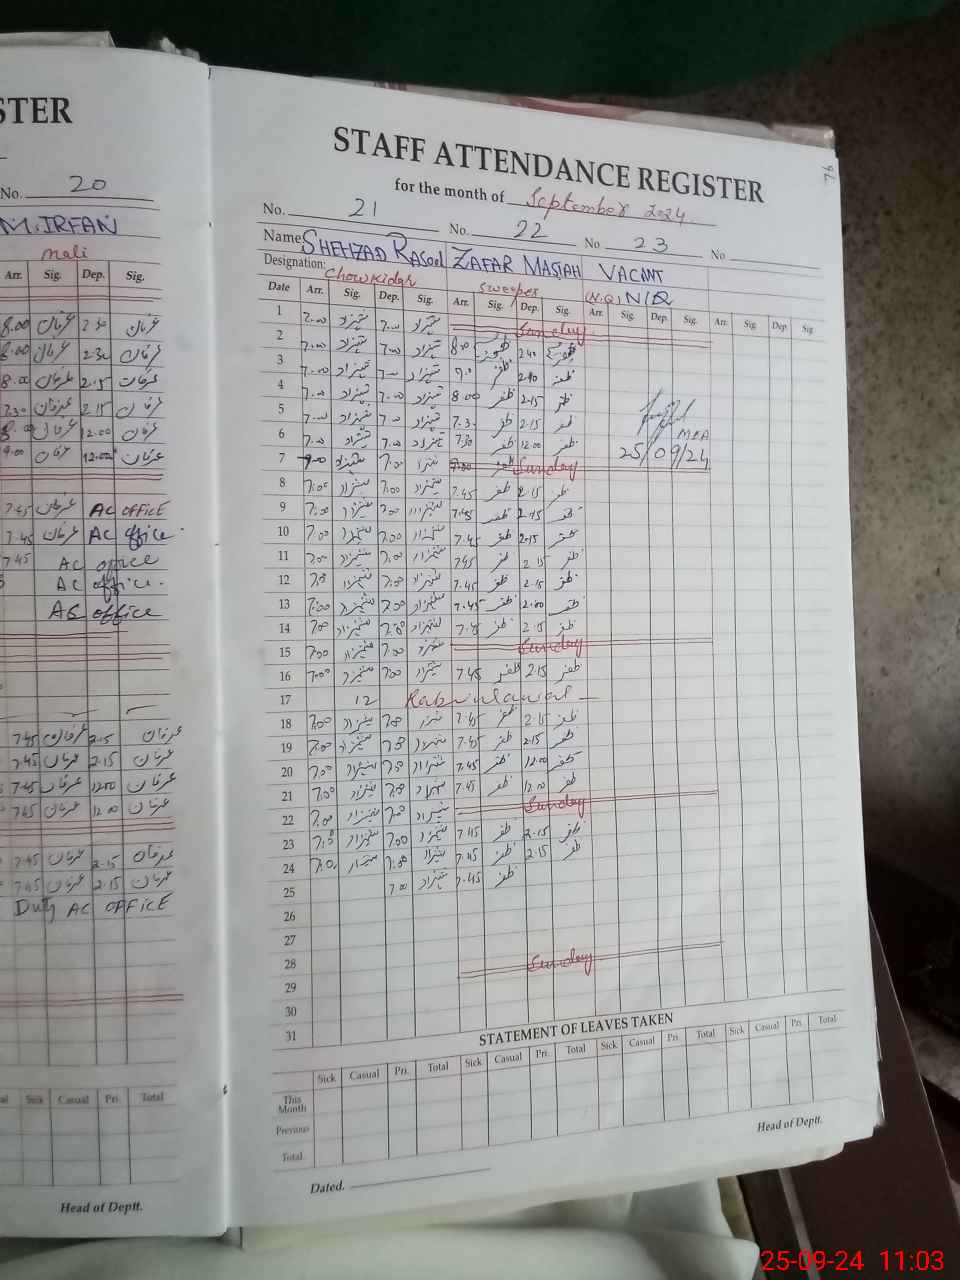 STER
No. 20
M. IRFAN
mali
Arr. Sig. Dep. Sig.
8.00 عرفان 2.30 عرفان
8.00 عرفان 2.30 عرفان
8.00 عرفان 2.15 عرفان
7.30 عرفان 2.15 عرفان
8.00 عرفان 12.00 عرفان
9.00 عرفان 12.00 عرفان
7.45 عرفان AC OFFICE
7.45 عرفان AC office
7.45 AC office
AC office.
AC office
7.45 عرفان 2.15 عرفان
7.45 عرفان 2.15 عرفان
7.45 عرفان 1200 عرفان
7.45 عرفان 12.00 عرفان
7.45 عرفان 2.15 عرفان
7.45 عرفان 2.15 عرفان
Duty AC OFFICE
Sick Casual Pri. Total
Head of Deptt.
76
STAFF ATTENDANCE REGISTER
for the month of September 2024.
No. 21 No. 22 No 23 No
Name SHEHZAD Rasool ZAFAR MASIAH VACANT
Designation: Chowkidar sweeper (N.Q) N/Q
Date Arr. Sig. Dep. Sig. Arr. Sig. Dep. Sig. Arr. Sig. Dep. Sig. Arr. Sig. Dep. Sig.
1 7.00 شہزاد 7.00 شہزاد Sunday
2 7.00 شہزاد 7.00 شہزاد 8.00 ظفر 2.40 ظفر
3 7.00 شہزاد 7.00 شہزاد 9.0 ظفر 2.40 ظفر
4 7.00 شہزاد 7.00 شہزاد 8.00 ظفر 2.15 ظفر
5 7.00 شہزاد 7.00 شہزاد 7.30 ظفر 2.15 ظفر
6 7.00 شہزاد 7.00 شہزاد 7.30 ظفر 12.00 ظفر
MEA
25/09/24
7 7.00 شہزاد 7.00 شہزاد 9.00 Sunday
8 7.00 شہزاد 7.00 شہزاد 7.45 ظفر 2.15 ظفر
9 7.00 شہزاد 7.00 شہزاد 7.45 ظفر 2.15 ظفر
10 7.00 شہزاد 7.00 شہزاد 7.45 ظفر 2.15 ظفر
11 7.00 شہزاد 7.00 شہزاد 745 ظفر 2.15 ظفر
12 7.00 شہزاد 7.00 شہزاد 7.45 ظفر 2.15 ظفر
13 7.00 شہزاد 7.00 شہزاد 7.45 ظفر 2.00 ظفر
14 7.00 شہزاد 7.00 شہزاد 7.45 ظفر 2.15 ظفر
15 7.00 شہزاد 7.00 شہزاد Sunday
16 7.00 شہزاد 7.00 شہزاد 7.45 ظفر 2.15 ظفر
17 12 Rabiulawal
18 7.00 شہزاد 7.00 شہزاد 7.45 ظفر 2.15 ظفر
19 7.00 شہزاد 7.00 شہزاد 7.45 ظفر 2.15 ظفر
20 7.00 شہزاد 7.00 شہزاد 7.45 ظفر 12.00 ظفر
21 7.00 شہزاد 7.00 شہزاد 7.45 ظفر 12.00 ظفر
22 7.00 شہزاد 7.00 شہزاد Sunday
23 7.00 شہزاد 7.00 شہزاد 7.45 ظفر 2.15 ظفر
24 7.00 شہزاد 7.00 شہزاد 7.45 ظفر 2.15 ظفر
25 7.00 شہزاد 7.45 ظفر
26
27
28 Sunday
29
30
31
STATEMENT OF LEAVES TAKEN
Sick Casual Pri. Total Sick Casual Pri. Total Sick Casual Pri. Total Sick Casual Pri. Total
This Month
Previous
Total
Head of Deptt.
Dated.
25-09-24 11:03